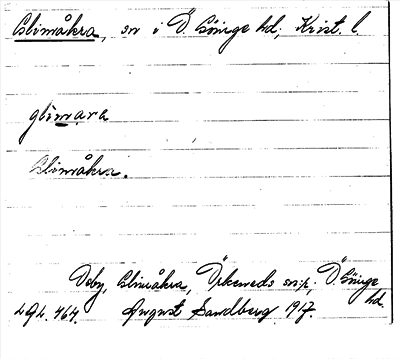 Glimåkra, sn i Ö. Göinge hd, Krist. l.
glimara
Glimåkra.
Glimåkra, Örkeneds sn; Ö. Göinge hd.
LGL. 464. August Sandberg 1917.